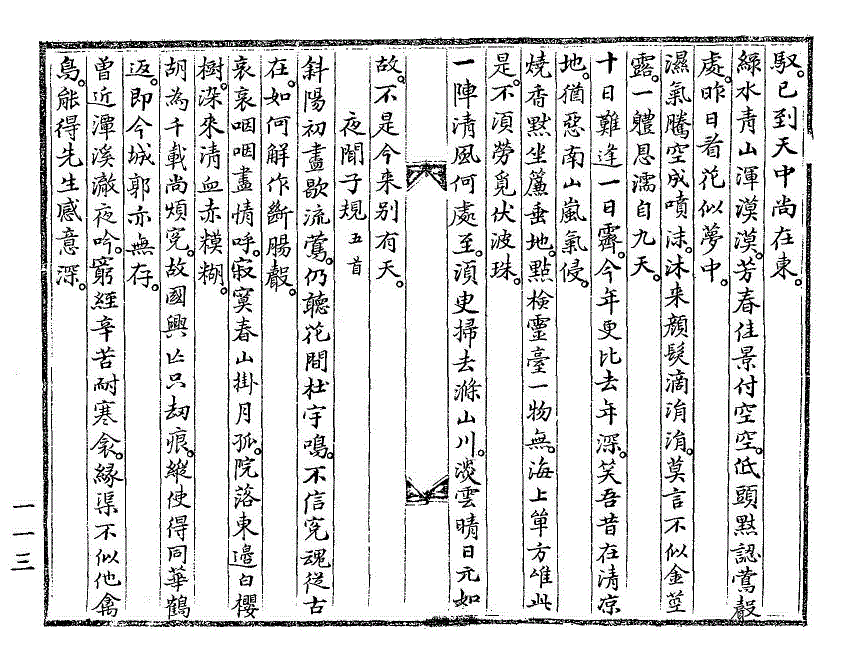 馭。已到天中尚在東。
綠水青山渾漠漠。芳春佳景付空空。低頭點認鶯聲
處。昨日看花似夢中。
濕氣騰空成噴沫。沐來顏髮滴涓涓。莫言不似金莖
露。一軆恩濡自九天。
十日難逢一日霽。今年更比去年深。笑吾昔在清凉
地。猶惡南山嵐氣侵。
燒香默坐簾垂地。點檢靈臺一物無。海上單方唯此
是。不須勞覓伏波珠。
一陣清風何處至。須臾掃去滌山川。淡雲晴日元如
故。不是今来别有天。
夜聞子規 五首
斜陽初盡歇流鶯。仍聽花間杜宇鳴。不信寃魂從古
在。如何解作斷腸聲。
哀哀咽咽盡情呼。寂寞春山掛月孤。院落東邊白櫻
樹。染來清血赤糢糊。
胡為千載尚煩寃。故國興亡只劫痕。縱使得同華鶴
返。即今城郭亦無存。
曾近潭溪澈夜吟。窮經辛苦耐寒衾。緣渠不似他禽
鳥。能得先生感意深。
一一三